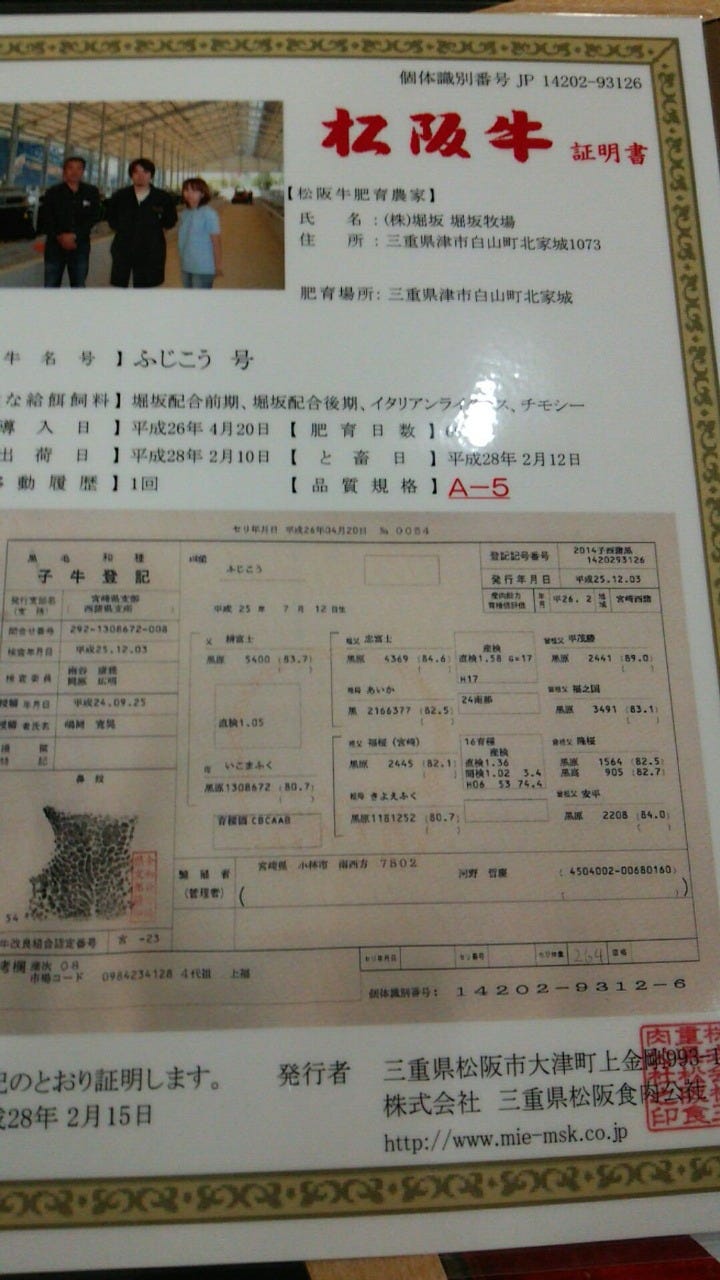 個体識別番号 JP 14202-93126
松阪牛 証明書
【松阪牛肥育農家】
氏 名:(株)堀坂 堀坂牧場
住 所:三重県津市白山町北家城1073
肥育場所:三重県津市白山町北家城
牛名号】ふじこう 号
な給餌飼料】堀坂配合前期、堀坂配合後期、イタリアンライ ス、チモシー
導入日】平成26年 4月20日【肥育日数】
出荷日】平成28年 2月10日【と畜日】平成28年 2月12日
移動履歴】1回【品質規格】A-5
セリ年月日 平成26年04月20日 № 0054
黒毛和種
子牛登記
ふじこう
登記記号番号 2014子西諸黒 1420293126
発行年月日 平成25.12.03
平26. 2 地域 宮崎西諸
発行支部名(支所) 宮崎県支部 西諸県支所
平成 25年 7月 12日生
問合せ番号 292-1308672-008
検査年月日 平成25.12.03
検査委員
年月日 平成24.09.25
父 勝富士
黒原 5400 (83.7)
直検1.05
母 いこまふく
黒原1308672 (80.7)
育種価 CBCAAB
祖父 忠富士
黒原 4369 (84.6)
産検
直検1.58 G=17
H17
祖母 あいか
黒 2166377 (82.5)
24南那
祖父 福桜(宮崎)
黒原 2445 (82.1)
16育種
産検
直検1.36
間検1.02 3.4
H06 53 74.4
祖母 きよえふく
黒原1181252 (80.7)
曾祖父 平茂勝
黒原 2441 (89.0)
曾祖父 福之国
黒原 3491 (83.1)
曾祖父 隆桜
黒原 1564 (82.5)
黒高 905 (82.7)
曾祖父 安平
黒原 2208 (84.0)
鼻紋
54
繁殖者(管理者) 宮崎県 小林市 南西方 7802
河野 (4504002-00680160)
牛改良組合認定番号 宮 -23
考欄 産次 08
市場コード 0984234128 4代祖 上福
セリ年月日 セリ番号 セリ体重 264 価格
個体識別番号: 14202-9312-6
記のとおり証明します。
28年 2月15日
発行者 三重県松阪市大津町上金剛993-1
株式会社 三重県松阪食肉公社
http://www.mie-msk.co.jp